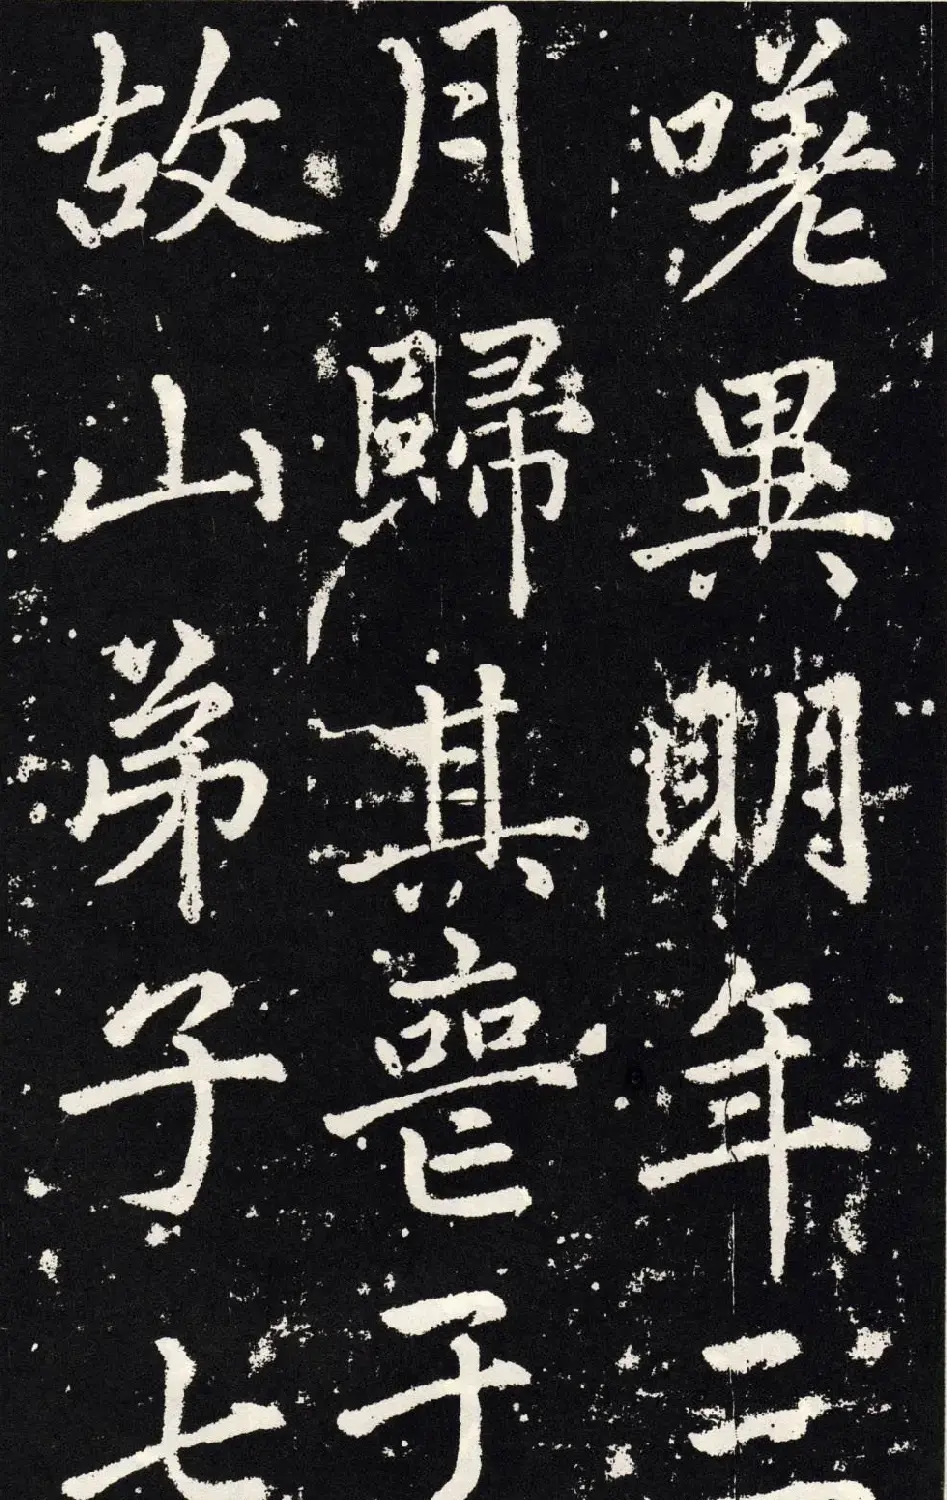 嗟異明年三
月歸其喪于
故山弟子七